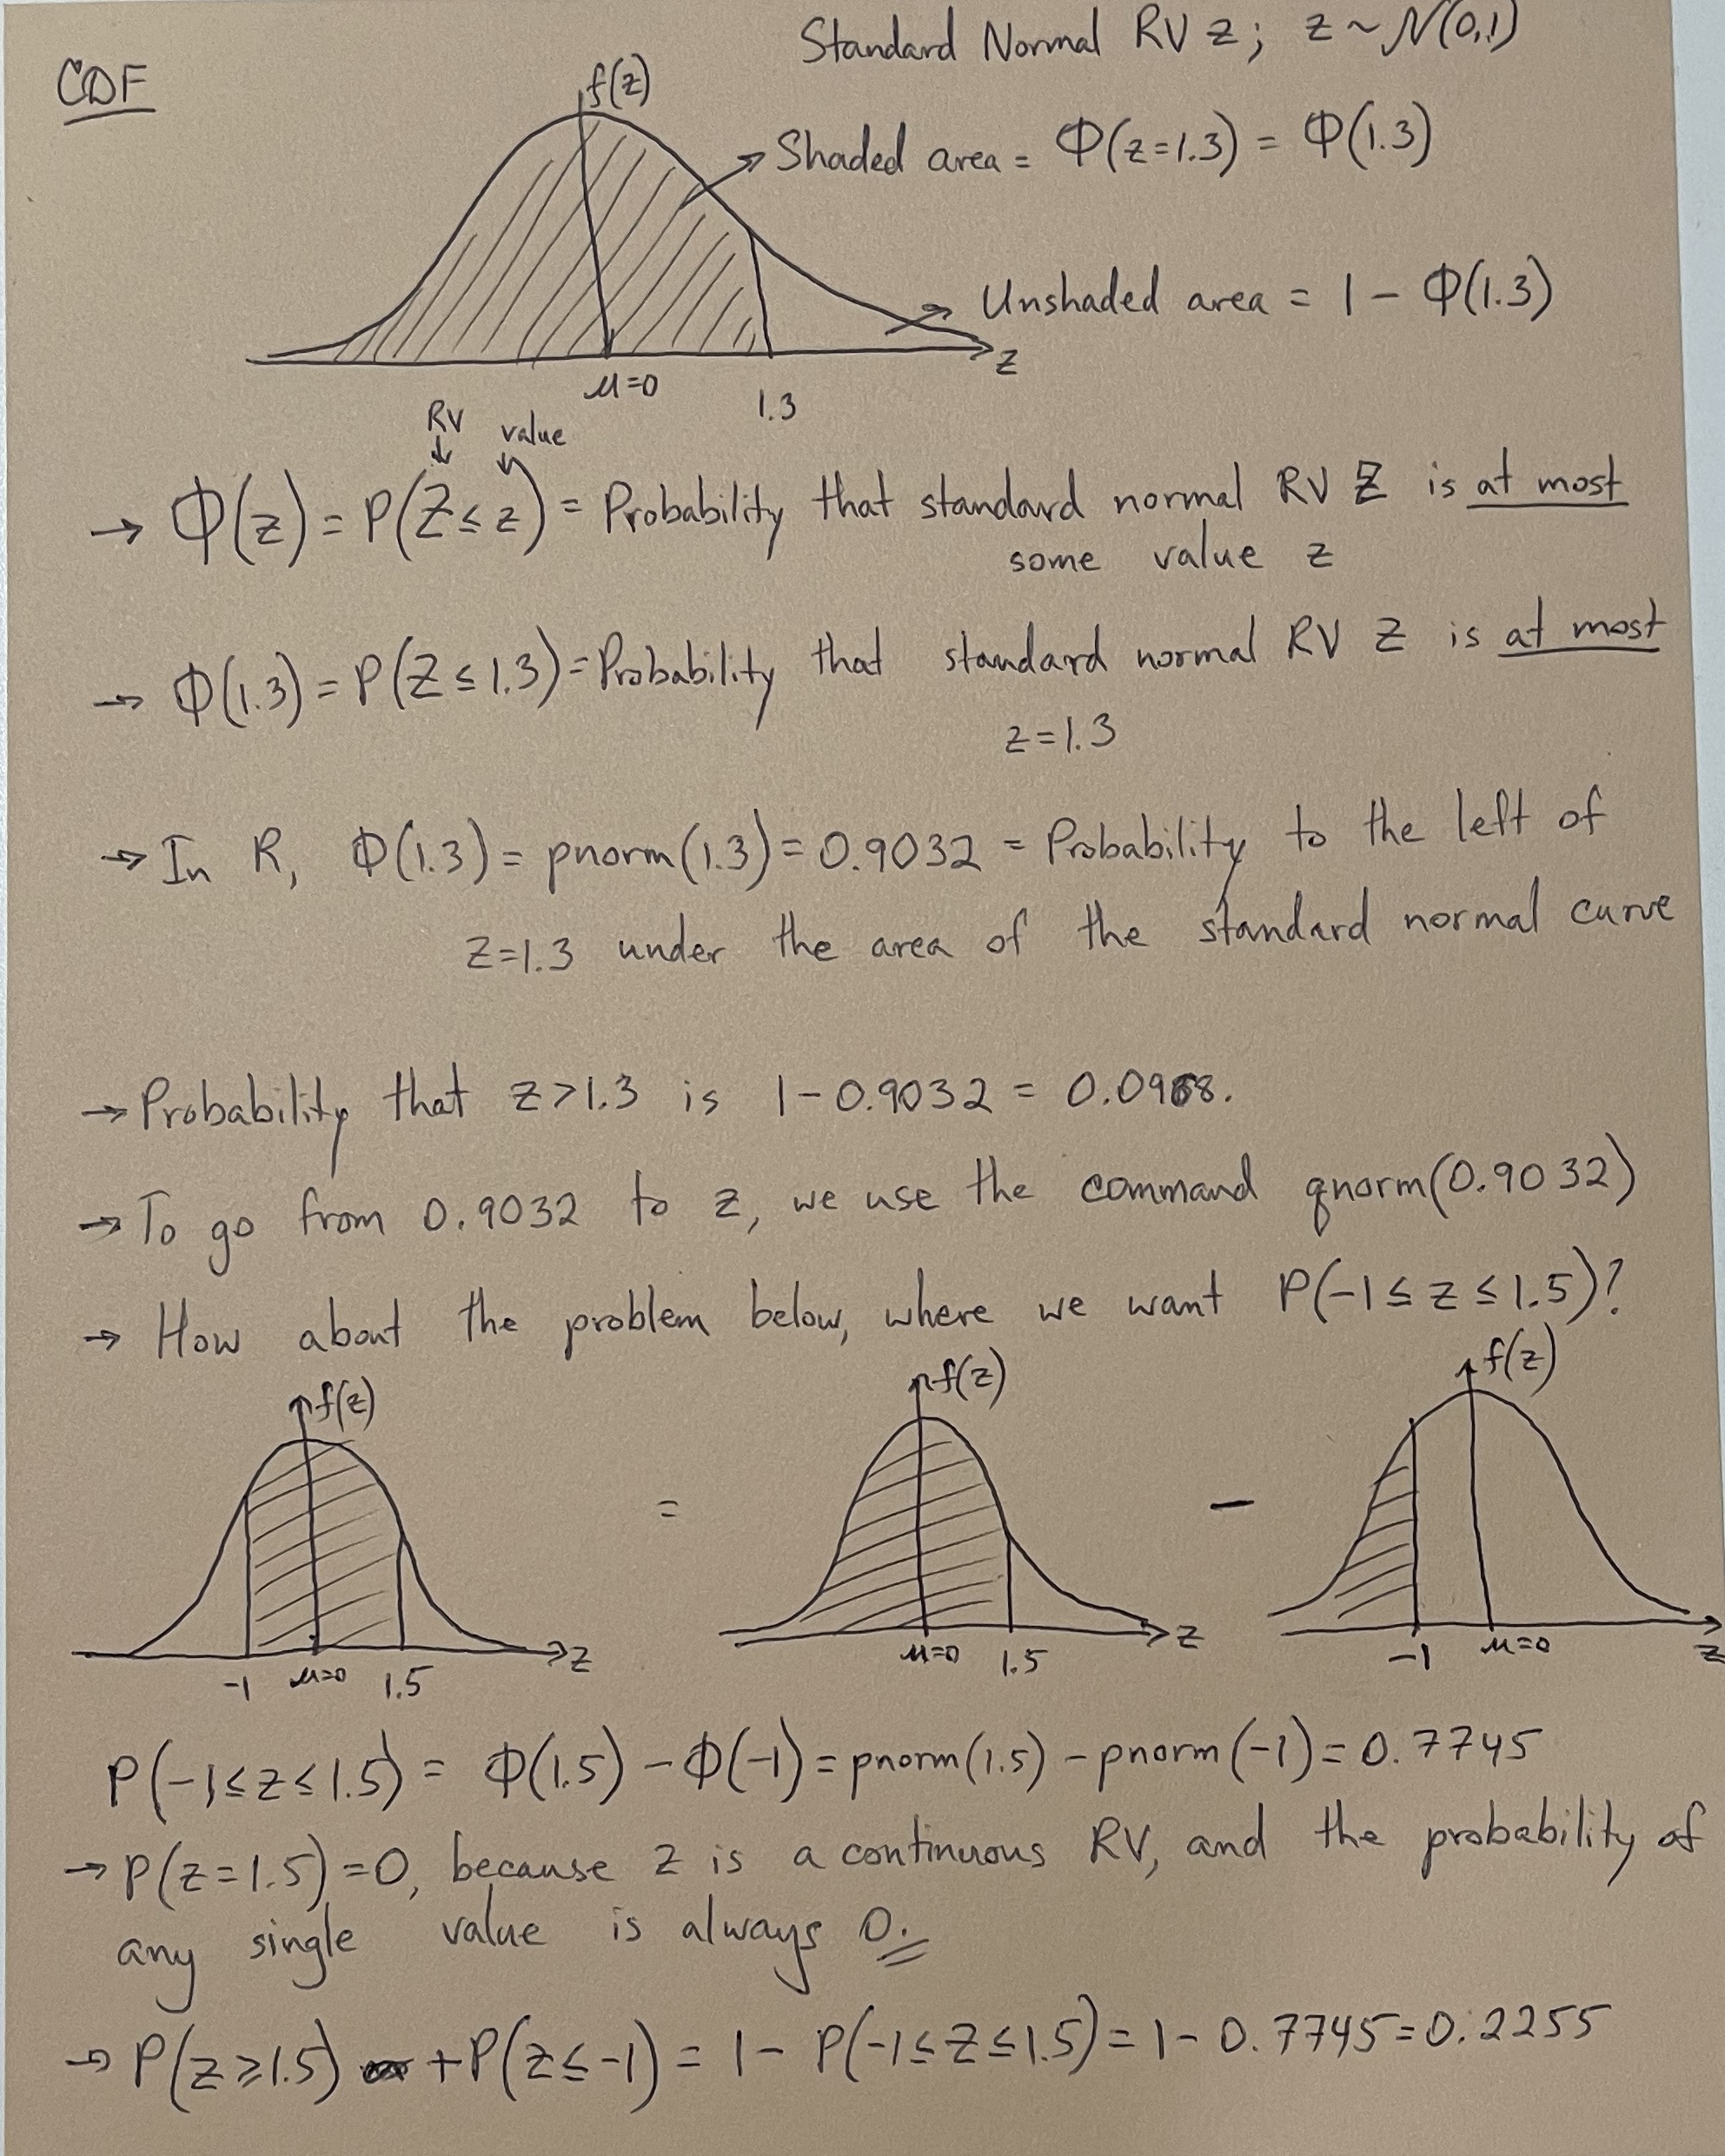 Standard Normal RV z; z ~ N(0,1)
CDF
f(z)
Shaded area = Φ(z=1.3) = Φ(1.3)
Unshaded area = 1 - Φ(1.3)
z
μ=0
1.3
RV
value
→ Φ(z) = P(Z ≤ z) = Probability that standard normal RV Z is at most
some value z
→ Φ(1.3) = P(Z ≤ 1.3) = Probability that standard normal RV Z is at most
z=1.3
→ In R, Φ(1.3) = pnorm(1.3) = 0.9032 = Probability to the left of
Z=1.3 under the area of the standard normal curve
→ Probability that z>1.3 is 1-0.9032 = 0.0968.
→ To go from 0.9032 to z, we use the command qnorm(0.9032)
→ How about the problem below, where we want P(-1 ≤ z ≤ 1.5)?
f(z) f(z) f(z)
= -
-1 μ=0 1.5 z μ=0 1.5 z -1 μ=0 z
P(-1 ≤ z ≤ 1.5) = Φ(1.5) - Φ(-1) = pnorm(1.5) - pnorm(-1) = 0.7745
→ P(z=1.5) = 0, because z is a continuous RV, and the probability of
any single value is always 0.
→ P(z ≥ 1.5) + P(z ≤ -1) = 1 - P(-1 ≤ Z ≤ 1.5) = 1 - 0.7745 = 0.2255